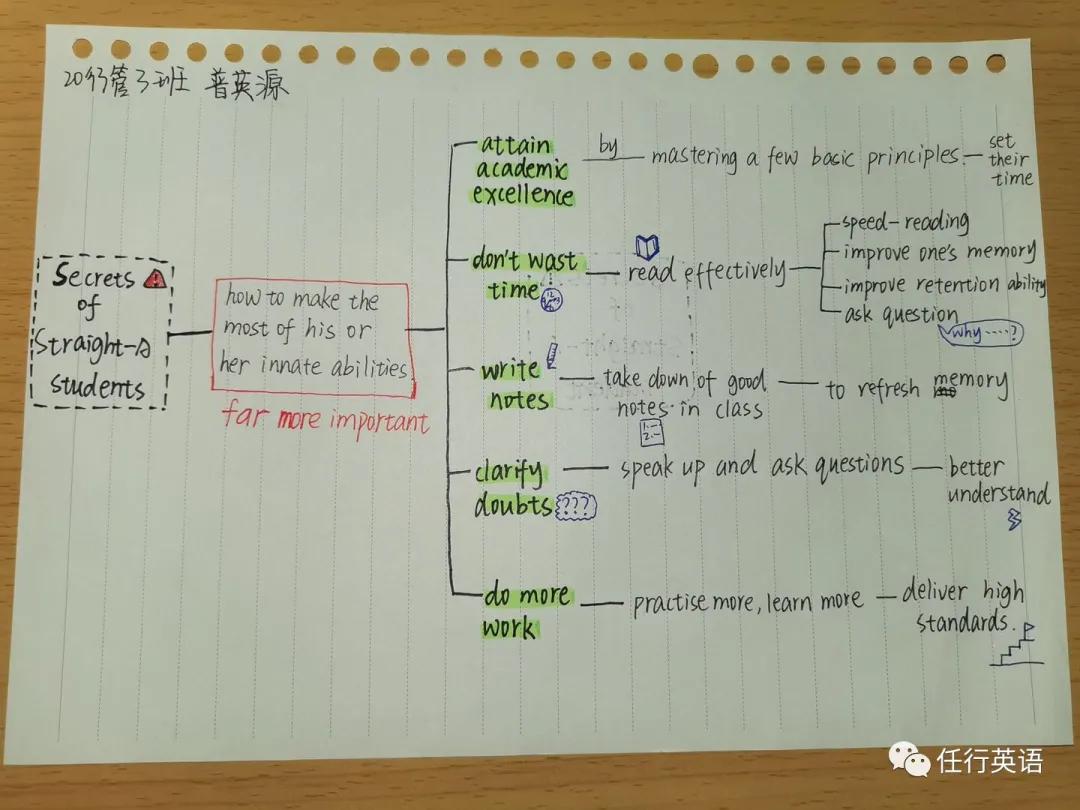 20行管3班 普英源
Secrets
of
Straight-A
students
how to make the
most of his or
her innate abilities
far more important
attain
academic
excellence
by
mastering a few basic principles.
set
their
time
don't wast
time
read effectively
speed-reading
improve one's memory
improve retention ability
ask question
why ....?
write
notes
take down of good
notes in class
1.—
2.—
to refresh memory
clarify
doubts
???
speak up and ask questions
better
understand
do more
work
practise more, learn more
deliver high
standards.
任行英语